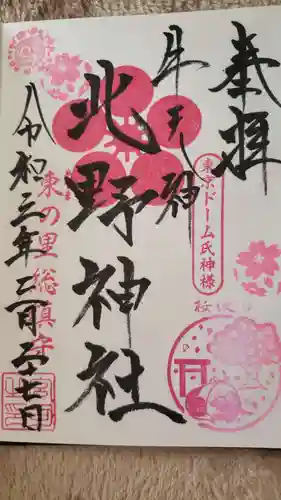 奉拝
東京ドーム氏神様
牛天神
北野神社
東の里総鎮守
令和三年二月二十七日